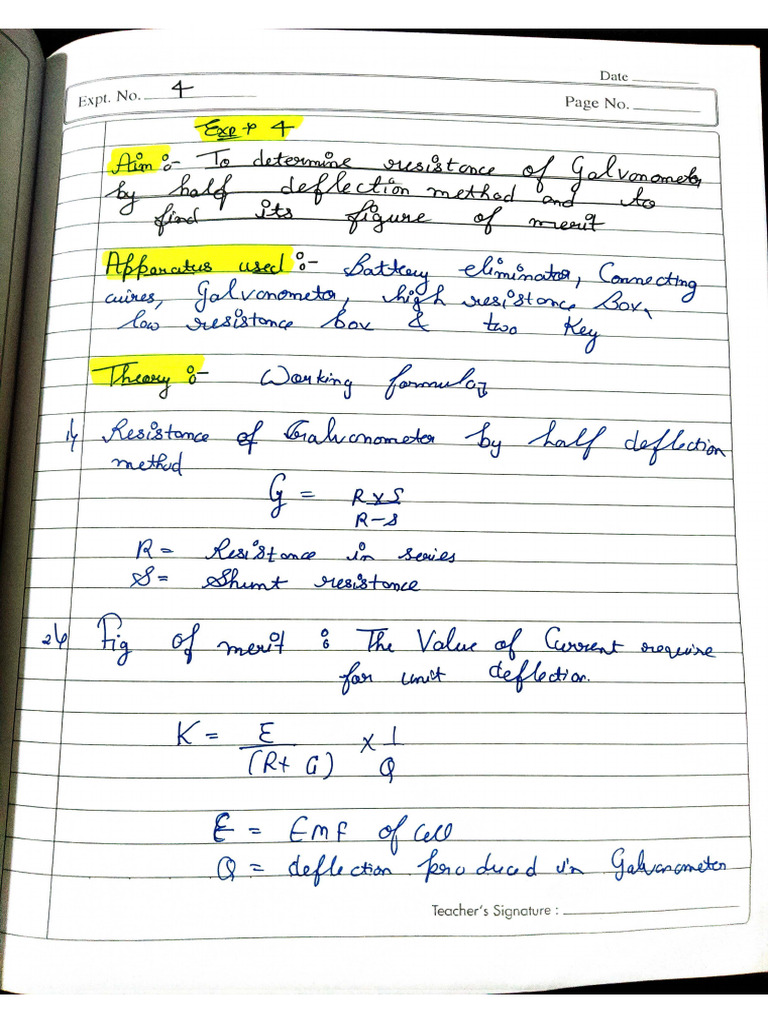 Date
Expt. No. 4
Page No.
Expt 4
Aim :- To determine resistance of Galvonometer
by half deflection method and to
find its figure of merit
Apparatus used :- Battery eliminator, Connecting
wires, Galvonometer, high resistance Box,
low resistance box & two Key
Theory :- Working formula,
1) Resistance of Galvonometer by half deflection
method
G = R x S
R - S
R = Resistance in series
S = Shunt resistance
2) Fig of merit : The Value of Current require
for unit deflection.
K = E x 1
(R + G) Q
E = EMF of Cell
Q = deflection produced in Galvanometer
Teacher's Signature :